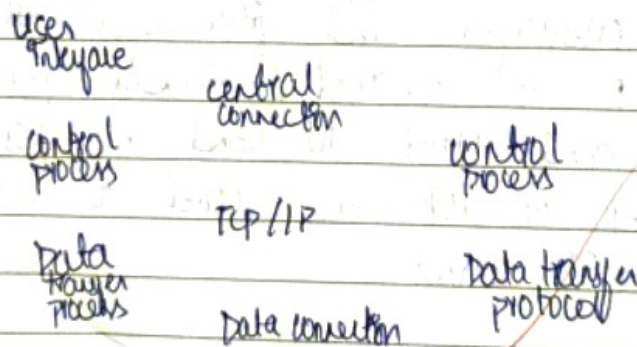 User
Interface
central
connection
control
process
control
process
TCP/IP
Data
transfer
process
Data transfer
protocol
Data connection